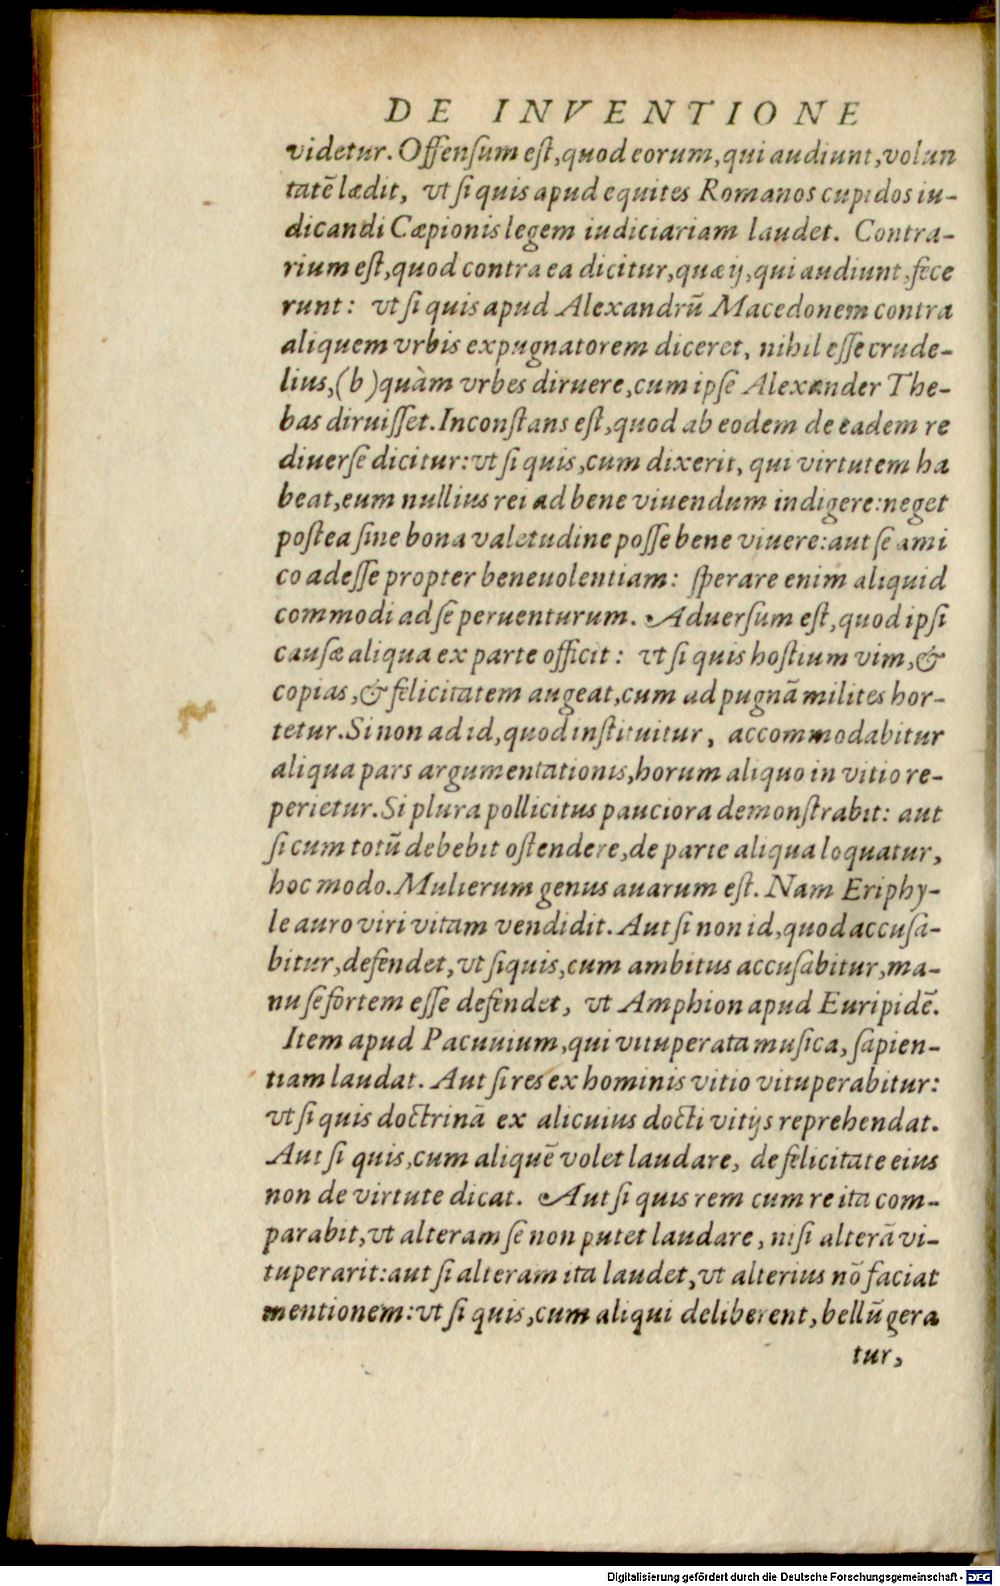 DE INVENTIONE
videtur. Offensum est, quod eorum, qui audiunt, volun
tatē lædit, vt si quis apud equites Romanos cupidos iu-
dicandi Cæpionis legem iudiciariam laudet. Contra-
rium est, quod contra ea dicitur, quæ ij, qui audiunt, fece
runt: vt si quis apud Alexandrū Macedonem contra
aliquem vrbis expugnatorem diceret, nihil esse crude-
lius, (b) quàm vrbes diruere, cum ipse Alexander The-
bas diruisset. Inconstans est, quod ab eodem de eadem re
diuerse dicitur: vt si quis, cum dixerit, qui virtutem ha
beat, eum nullius rei ad bene viuendum indigere: neget
postea sine bona valetudine posse bene viuere: aut se ami
co adesse propter beneuolentiam: sperare enim aliquid
commodi ad se peruenturum. Aduersum est, quod ipsi
causæ aliqua ex parte officit: vt si quis hostium vim, &
copias, & felicitatem augeat, cum ad pugnā milites hor-
tetur. Si non ad id, quod instituitur, accommodabitur
aliqua pars argumentationis, horum aliquo in vitio re-
perietur. Si plura pollicitus pauciora demonstrabit: aut
si cum totū debebit ostendere, de parte aliqua loquatur,
hoc modo. Mulierum genus auarum est. Nam Eriphy-
le auro viri vitam vendidit. Aut si non id, quod accusa-
bitur, defendet, vt si quis, cum ambitus accusabitur, ma-
nu se fortem esse defendet, vt Amphion apud Euripidē.
Item apud Pacuuium, qui vituperata musica, sapien-
tiam laudat. Aut si res ex hominis vitio vituperabitur:
vt si quis doctrinā ex alicuius docti vitijs reprehendat.
Aut si quis, cum aliquē volet laudare, de felicitate eius
non de virtute dicat. Aut si quis rem cum re ita com-
parabit, vt alteram se non putet laudare, nisi alterā vi-
tuperarit: aut si alteram ita laudet, vt alterius nō faciat
mentionem: vt si quis, cum aliqui deliberent, bellū gera
tur,
Digitalisierung gefördert durch die Deutsche Forschungsgemeinschaft - DFG